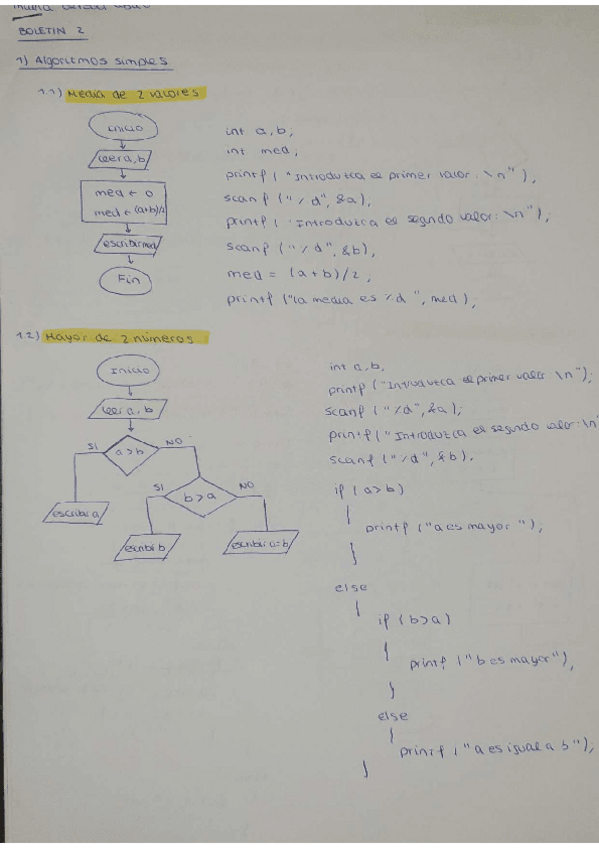 BOLETIN 2
1) Algoritmos simples
1.1) Media de 2 valores
inicio
leer a, b
med ← 0
med ← (a+b)/2
escribir med
Fin
int a, b,
int med,
printf ( "Introduzca el primer valor: \n" ),
scanf ("%d", &a),
printf ( "Introduzca el segundo valor: \n" ),
scanf ("%d", &b),
med = (a+b)/2,
printf ("la media es %d ", med ),
1.2) Mayor de 2 números
Inicio
leer a, b
SI
a > b
NO
escribir a
SI
b > a
NO
escribir b
escribir a=b
int a, b,
printf ("Introduzca el primer valor \n");
scanf ("%d", &a);
printf ("Introduzca el segundo valor: \n
scanf ("%d", &b),
if (a>b)
{
printf ("a es mayor ");
}
else
{
if (b>a)
{
printf ("b es mayor"),
}
else
{
printf ("a es igual a b");
}